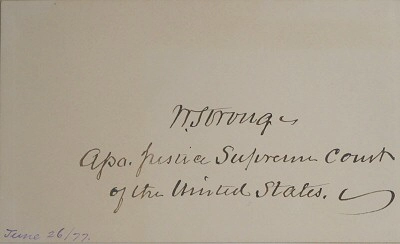 W. Strong
Asso. Justice Supreme Court
of the United States.
June 26/77.